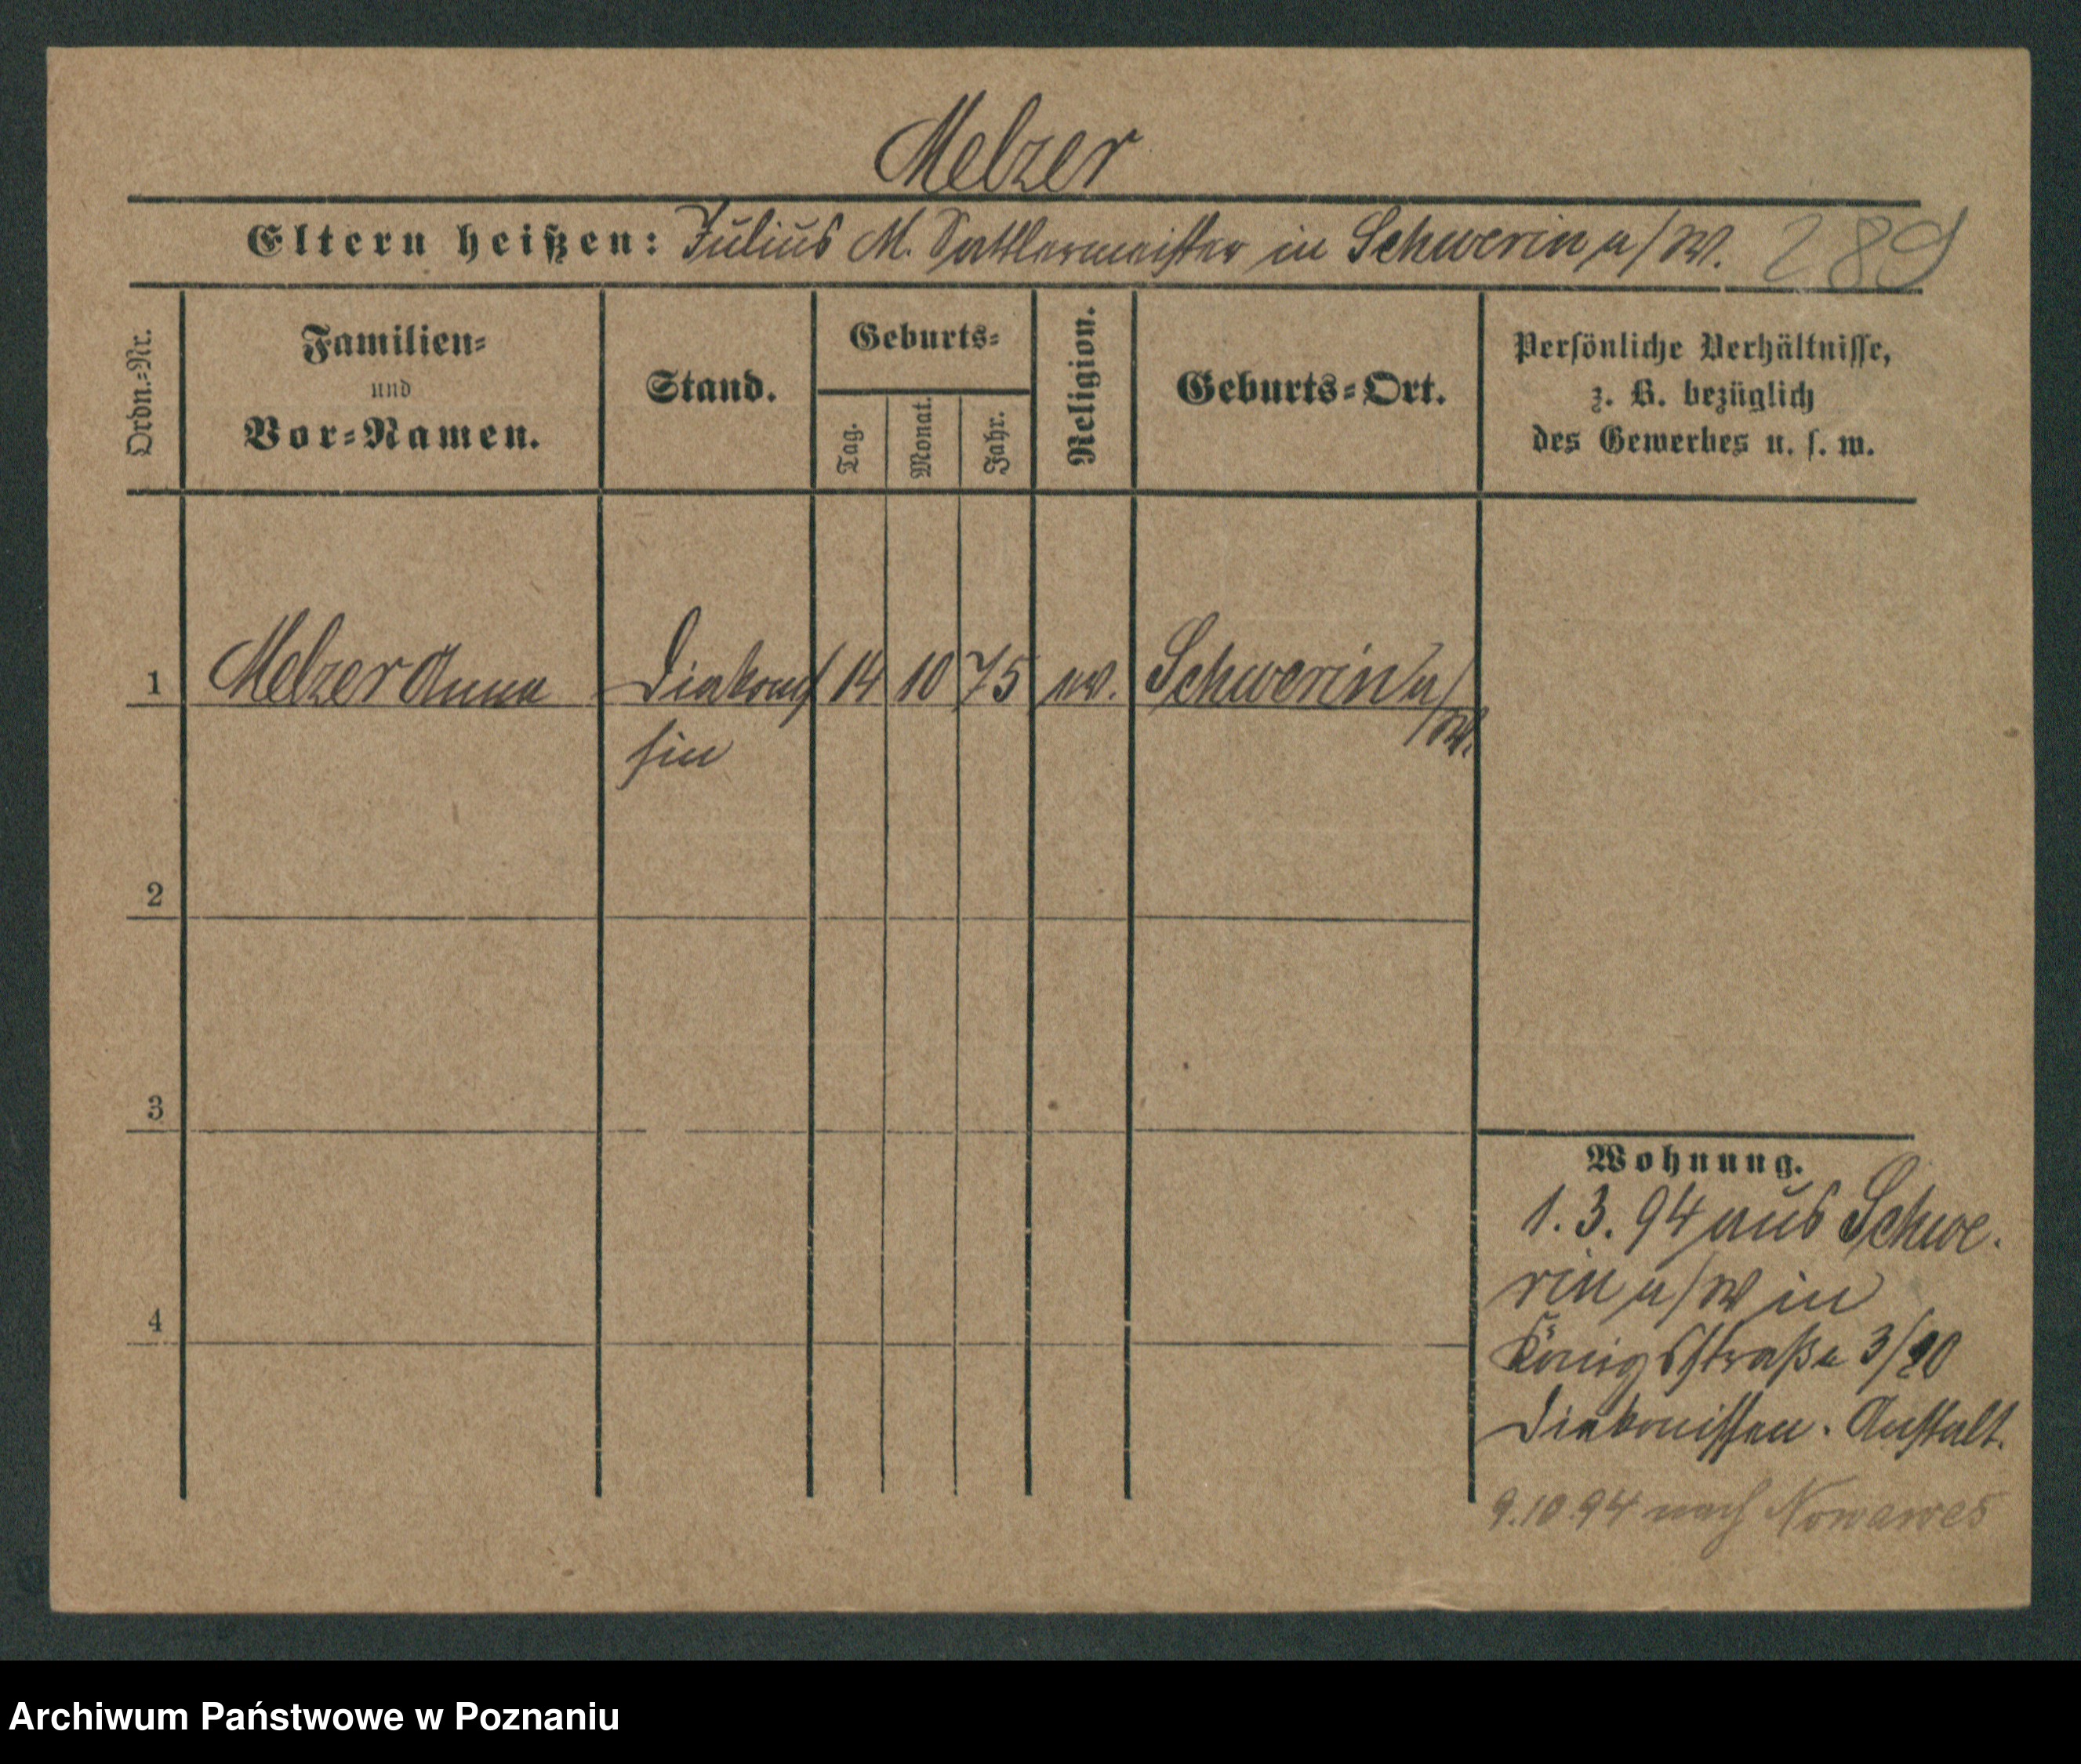 Melzer
Eltern heißen: Julius M. Sattlermeister in Schwerin a/W. 289
Ordn.=Nr.
Familien=
und
Vor=Namen.
Stand.
Geburts=
Tag.
Monat.
Jahr.
Religion.
Geburts=Ort.
Persönliche Verhältnisse,
z. B. bezüglich
des Gewerbes u. s. w.
1 Melzer Anna Diakonis 14 10 75 ev. Schwerin a/
sin /W.
2
3
4
Wohnung.
1. 3. 94 aus Schwe.
rin a/W in
Königsstraße 3/20
Diakonissen. Anstalt.
9.10.94 nach Nowawes
Archiwum Państwowe w Poznaniu